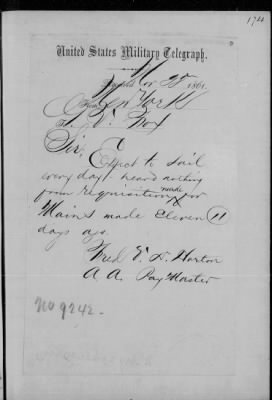 1724
United States Military Telegraph.
Received Nov 25 1861.
From New York
To G. V. Fox
Sir, Expect to sail
every day. heard nothing
from requisition made for
Mains made Eleven (11)
days ago.
Fred E. D. Horton
A A. Pay Master
No 9242.